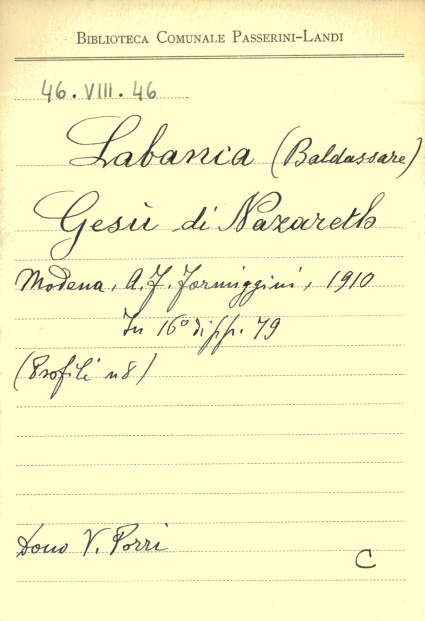 BIBLIOTECA COMUNALE PASSERINI-LANDI
46. VIII. 46
Labanca (Baldassare)
Gesù di Nazareth
Modena, A. F. Formiggini, 1910
In 16° di pp. 79
(Profili n 8)
Dono V. Porri
C